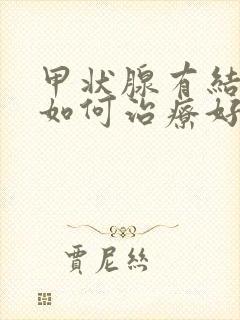 甲状腺有結
如何治療好
賈尼絲